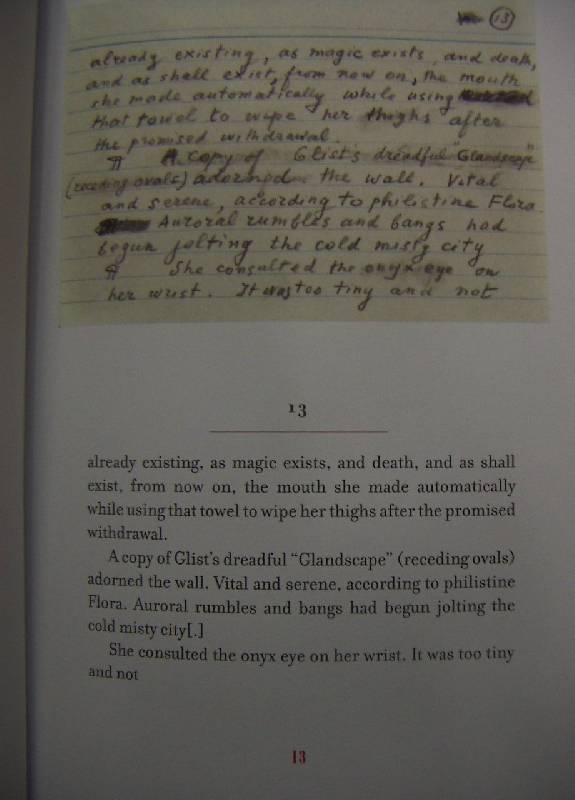 13
already existing, as magic exists, and death,
and as shall exist, from now on, the mouth
she made automatically while using
that towel to wipe her thighs after
the promised withdrawal.
¶ A copy of Glist's dreadful "Glandscape"
(receding ovals) adorned the wall. Vital
and serene, according to philistine Flora.
Auroral rumbles and bangs had
begun jolting the cold misty city
¶ She consulted the onyx eye on
her wrist. It was too tiny and not
13
already existing, as magic exists, and death, and as shall
exist, from now on, the mouth she made automatically
while using that towel to wipe her thighs after the promised
withdrawal.
A copy of Glist's dreadful “Glandscape” (receding ovals)
adorned the wall. Vital and serene, according to philistine
Flora. Auroral rumbles and bangs had begun jolting the
cold misty city[.]
She consulted the onyx eye on her wrist. It was too tiny
and not
13